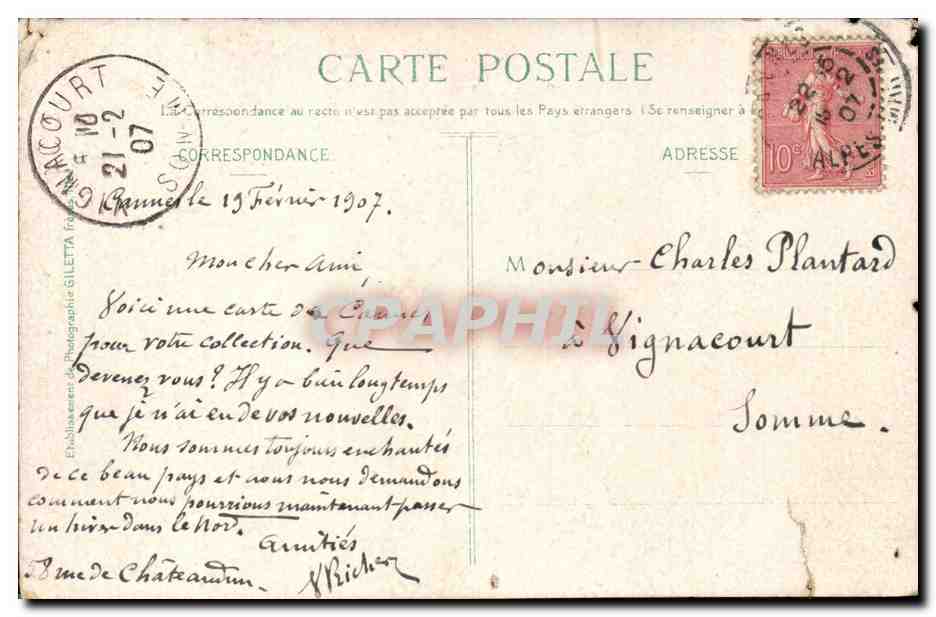 CARTE POSTALE
La Correspondance au recto n'est pas acceptée par tous les Pays étrangers (Se renseigner à
CORRESPONDANCE
ADRESSE
VIGNACOURT SOMME
10
21-2
07
10c
22
07
ALPES
Cannes le 19 Février 1907.
Mon cher Ami,
Voici une carte de Cannes
pour votre collection. Que
devenez vous? Il y a bien longtemps
que je n'ai eu de vos nouvelles.
Nous sommes toujours enchantés
de ce beau pays et nous nous demandons
comment nous pourrions maintenant passer
un hiver dans le Nord.
Amitiés
58 rue de Châteaudun
Monsieur Charles Plantard
à Vignacourt
Somme.
Etablissement de Photographie GILETTA frères
CPAPHIL